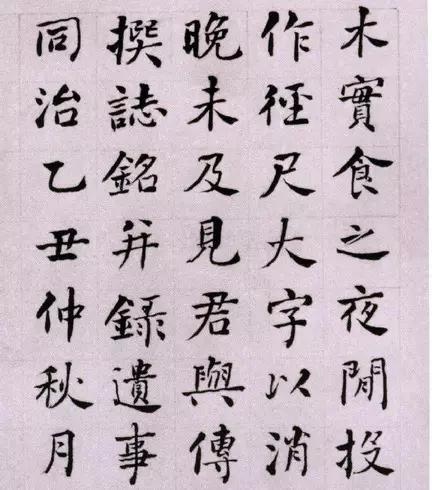 木實食之夜閒投
作徑尺大字以消
晚未及見君與傳
撰誌銘并錄遺事
同治乙丑仲秋月